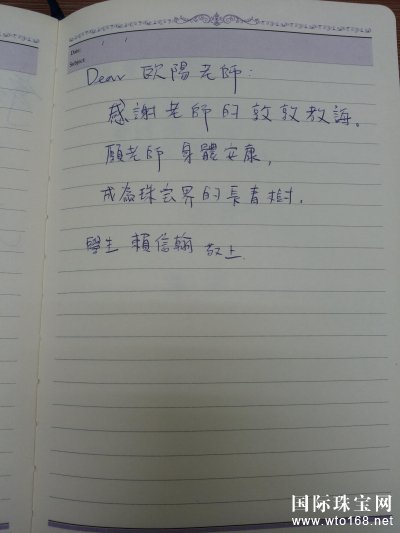 Date:
Subject:
Dear 歐陽老師：
感謝老師的敦敦教誨。
願老師身體安康，
成為珠宝界的長青樹。
學生 賴信翰 敬上
国际珠宝网
www.wto168.net